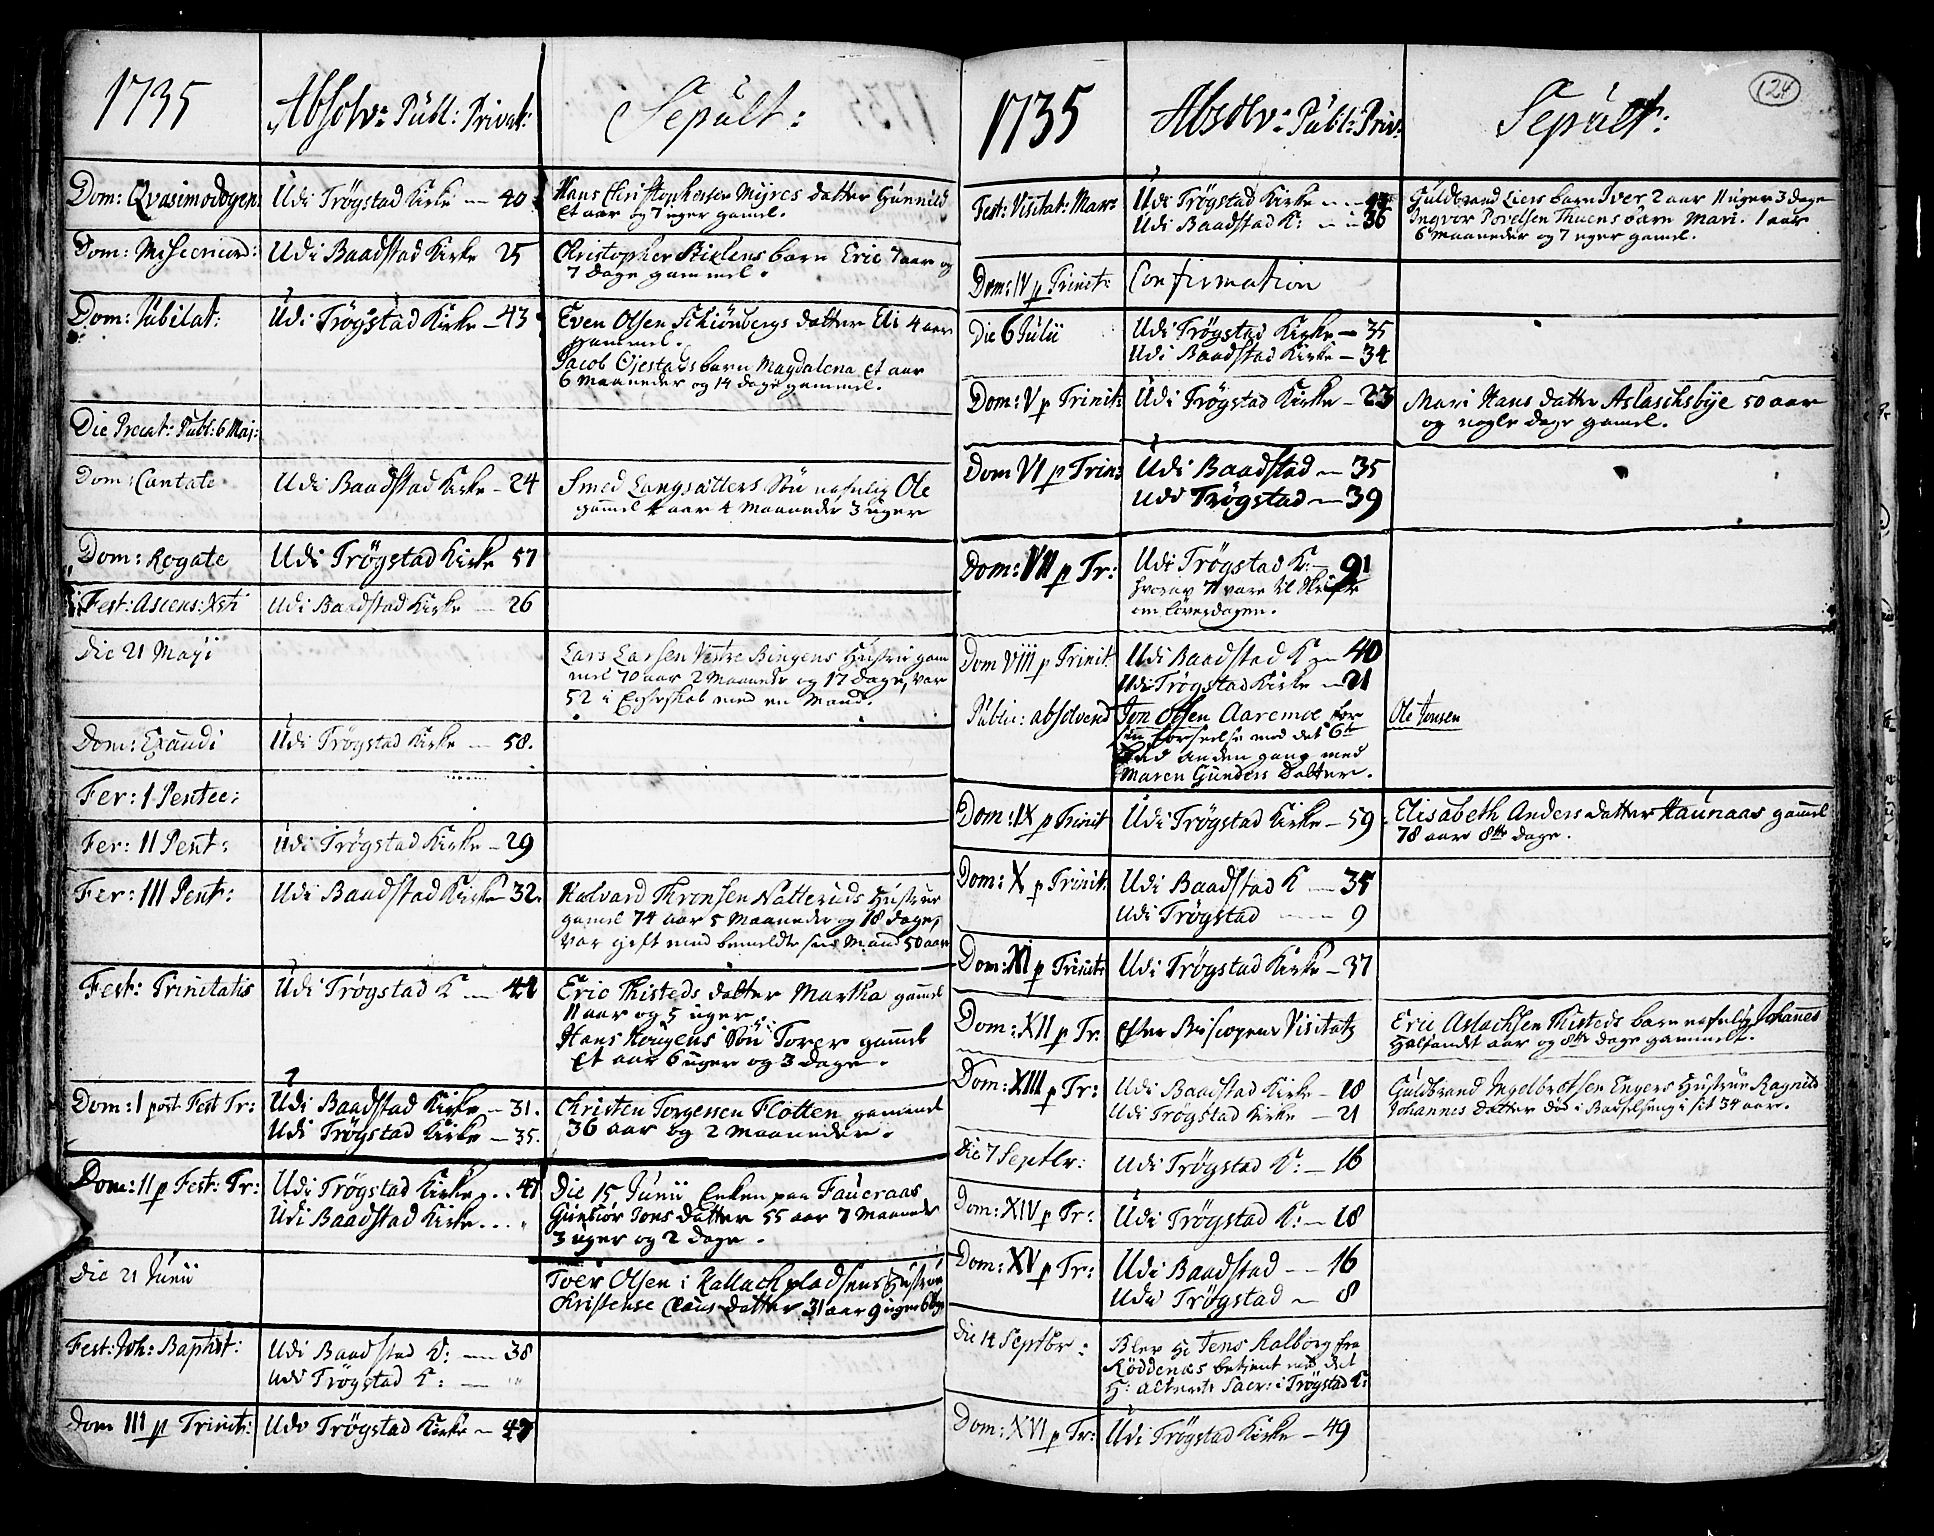 1735
Absolv: Publ: Privat:
Sepult:
Dom: Qvasimodogen:
Udi Trögstad Kirke — 40
Hans Christophersen Mijres datter Gunnild
et aar og 7 uger gamel.
Dom: Misericord:
Udi Baadstad Kirke 25
Christopher barn Eric 7 aar og
7 dage gammel.
Dom: Jubilat:
Udi Trögstad Kirke — 43
Even Olsen Schiönbergs datter Eli 4 aar
gammel.
Jacob barn Magdalena et aar
6 Maaneder og 14 dage gammel.
Die Precat: Publ: 6 Maj:
Dom: Cantate
Udi Baadstad Kirke — 24
Smed Langsætters Sön nafnlig Ole
gamel 4 aar 4 Maaneder 3 uger
Dom: Rogate
Udi Trögstad Kirke 57
Fest: Ascens: Xsti
Udi Baadstad Kirke — 26
Die 21 Maji
Lars Larsen Vestre Bingens Hustrue gam
mel 70 aar 2 Maaneder og 17 dage, var
52 i Egteskab med en Mand.
Dom: Exaudi
Udi Trögstad Kirke — 58.
Fer: I Pentec:
Fer: II Pent:
Udi Trögstad Kirke — 29
Fer: III Pent:
Udi Baadstad Kirke 32.
Halvard Thronsen Natteruds Hustrue
gamel 74 aar 5 Maaneder og 18 dage,
var gift med bemeldte sin Mand 50 aar
Fest: Trinitatis
Udi Trögstad K —
Eric Thisteds datter Martha gamel
11 aar og 5 uger
Hans Hougens Sön Torer gammel
et aar 6 uger og 3 dage.
Dom: I post Fest Tr:
Udi Baadstad Kirke — 31.
Udi Trögstad Kirke — 35.
Christen Torgersen Flotten gammel
36 aar og 2 Maaneder.
Dom: II p Fest: Tr:
Udi Trögstad Kirke
Udi Baadstad Kirke . . .
Die 15 Junii Enken paa Faueraas
Gunbiör Jons datter 55 aar 7 Maaneder
3 uger og 2 dage.
Die 21 Junii
Iver Olsen i Hustrue
Christense Claus datter 31 aar 9 uger
Fest: Joh: Baptist:
Udi Baadstad K: — 38
Udi Trögstad K: —
Dom III p Trinit:
Udi Trögstad Kirke —
1735
Absolv: Publ: Priv:
Sepult:
124
Fest: Visitat: Mar:
Udi Trögstad Kirke —
Udi Baadstad K: — 36
Guldbrand Liers barn Iver 2 aar 11 uger 3 dage
Ingvor Thuens barn Mari. 1 aar
6 Maaneder og 7 uger gamel.
Dom: IV p Trinit:
Confirmation
Die 6 Julii
Udi Trögstad Kirke — 35
Udi Baadstad Kirke — 34
Dom: V p Trinit:
Udi Trögstad Kirke — 23
Mari Hans datter Aslachsbye 50 aar
og nogle dage gamel.
Dom VI p Trin:
Udi Baadstad — 35
Udi Trögstad — 39
Dom: VII p Tr:
Udi Trögstad K: — 91
hvoraf 7 vare til Skrifte
om Löverdagen.
Dom VIII p Trinit
Udi Baadstad K — 40
Udi Trögstad Kirke — 21
Public: absolvered
Jon Olsen Aaremoe for
sin forseelse mod det 6te
bud anden gang med
Maren Gunders datter.
Ole Jonsen
Dom: IX p Trinit
Udi Trögstad Kirke — 59
Elisabeth Anders datter Haunaas gamel
78 aar 8te dage.
Dom: X p Trinit:
Udi Baadstad K — 35
Udi Trögstad — 9
Dom: XI p Trinit:
Udi Trögstad Kirke — 37
Dom: XII p Tr:
Efter Biscopens Visitatz
Eric Aslachsen Thisteds barn nafnlig Johannes
Halfandet aar og 8te dage gammelt.
Dom: XIII p Tr:
Udi Baadstad Kirke — 18
Udi Trögstad Kirke — 21
Guldbrand Ingelbretsen Engers Hustrue Ragnild
Johannes datter död i Barselseng i sit 34 aar.
Die 7 Septbr:
Udi Trögstad K: — 16
Dom: XIV p Tr:
Udi Trögstad K: — 18
Dom: XV p Tr:
Udi Baadstad — 16
Udi Trögstad — 8
Die 14 Septbr:
Blev Hr Jens Aalborg fra
Röddenæs betjent med det
H: Alterets Sacr: i Trögstad K:
Dom: XVI p Tr:
Udi Trögstad Kirke — 49